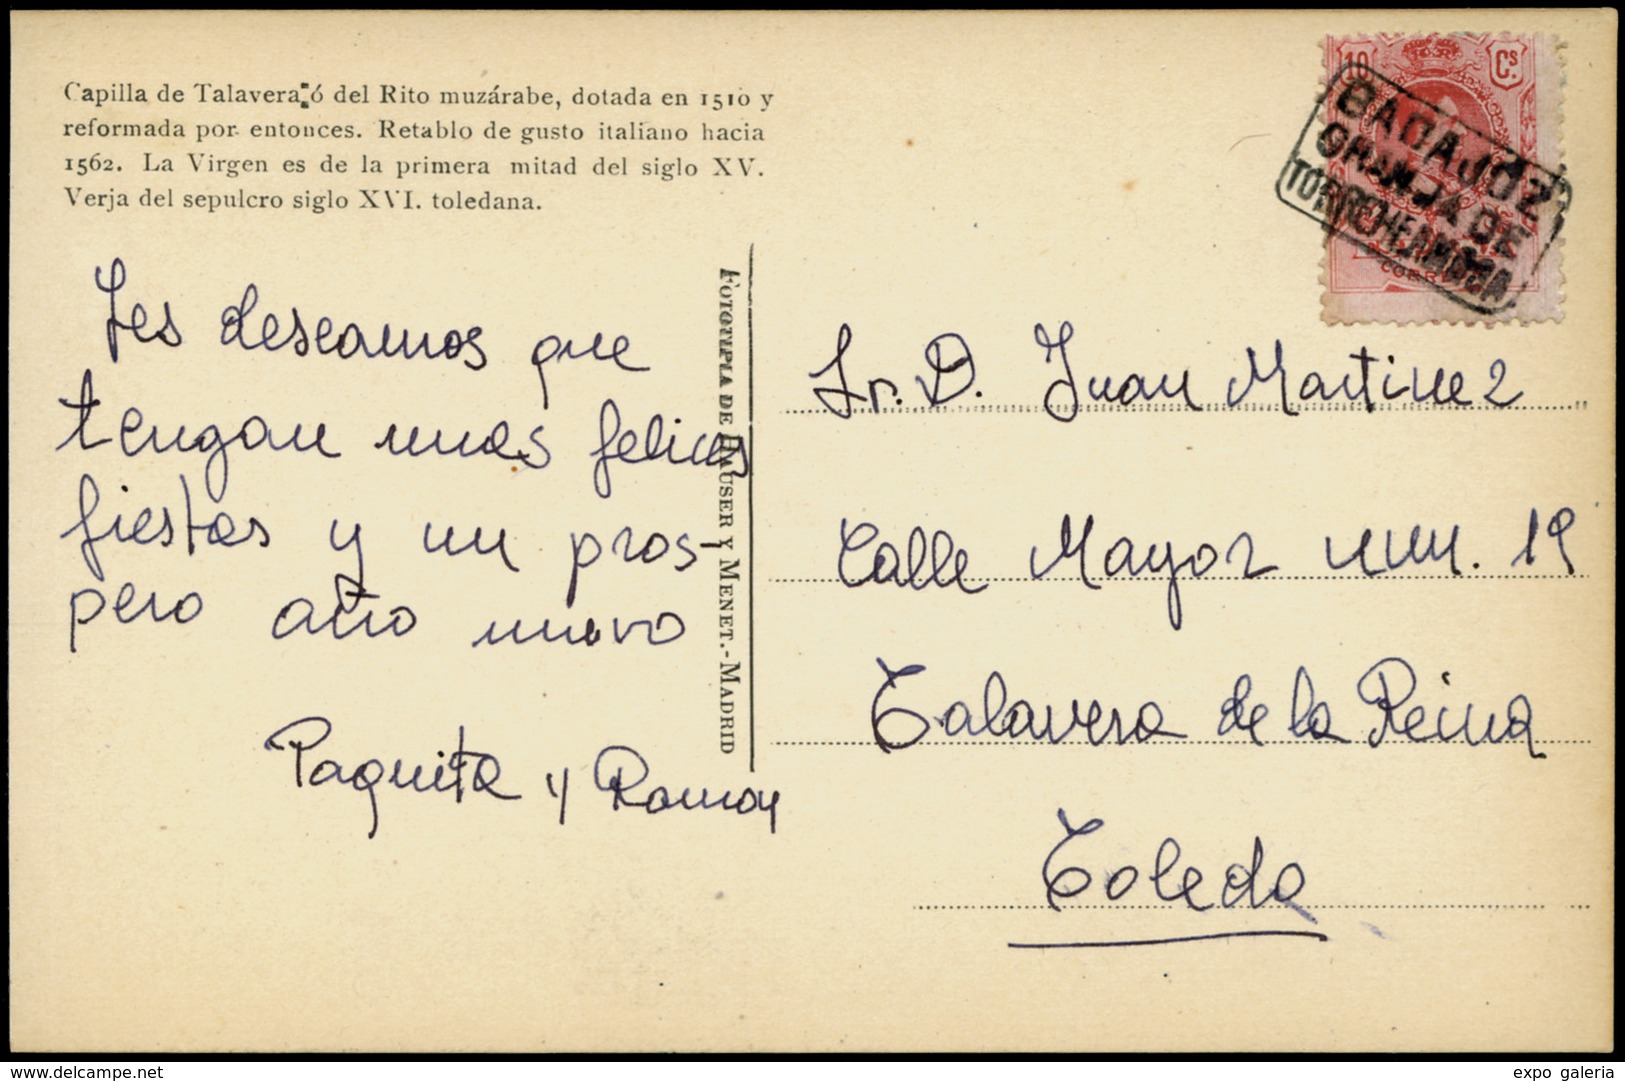 Capilla de Talavera ó del Rito muzárabe, dotada en 1510 y
reformada por entonces. Retablo de gusto italiano hacia
1562. La Virgen es de la primera mitad del siglo XV.
Verja del sepulcro siglo XVI. toledana.
Les deseamos que
tengan unas felices
fiestas y un pros-
pero año nuevo
Paquita y Ramon
FOTOTIPIA DE HAUSER Y MENET.-MADRID
10 Cs.
CORREOS
BADAJOZ
GRANJA DE
TORREHERMOSA
Sr. D. Juan Martinez
Calle Mayor num. 19
Talavera de la Reina
Toledo
www.delcampe.net
expo galeria